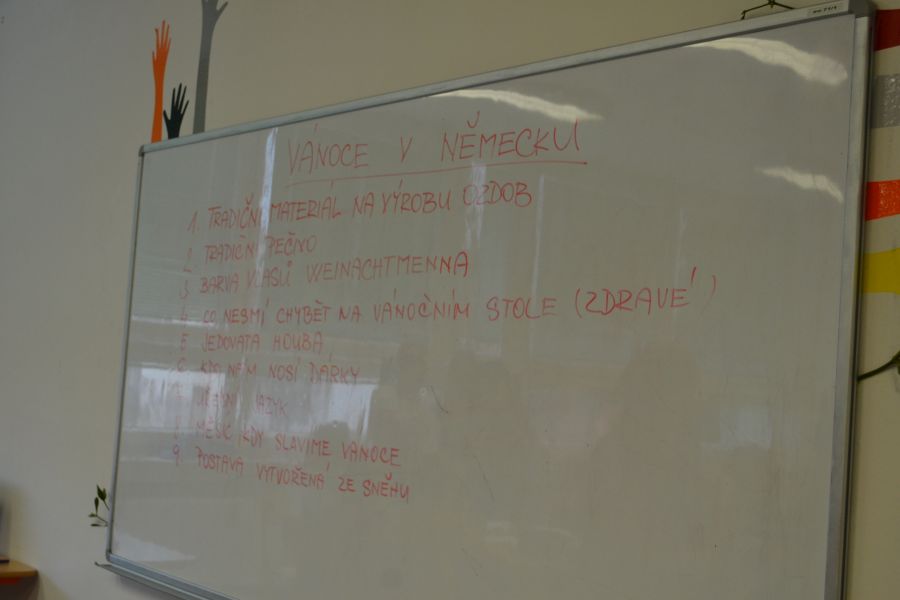 VÁNOCE V NĚMECKU
1. TRADIČNÍ MATERIÁL NA VÝROBU OZDOB
2. TRADIČNÍ PEČIVO
3. BARVA VLASŮ WEINACHTMENNA
4. CO NESMÍ CHYBĚT NA VÁNOČNÍM STOLE (ZDRAVÉ)
5. JEDOVATA HOUBA
6. KDO NÁM NOSÍ DÁRKY
7. JAZYK
8. MĚSÍC KDY SLAVÍME VÁNOCE
9. POSTAVA VYTVOŘENÁ ZE SNĚHU